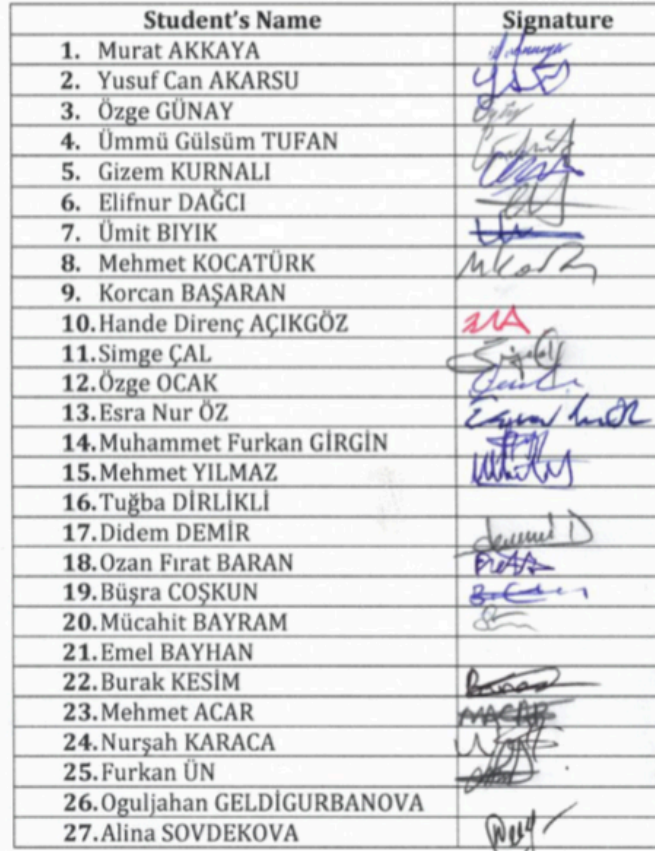 Student's Name Signature
1. Murat AKKAYA
2. Yusuf Can AKARSU
3. Özge GÜNAY
4. Ümmü Gülsüm TUFAN
5. Gizem KURNALI
6. Elifnur DAĞCI
7. Ümit BIYIK
8. Mehmet KOCATÜRK
9. Korcan BAŞARAN
10. Hande Direnç AÇIKGÖZ
11. Simge ÇAL
12. Özge OCAK
13. Esra Nur ÖZ
14. Muhammet Furkan GİRGİN
15. Mehmet YILMAZ
16. Tuğba DİRLİKLİ
17. Didem DEMİR
18. Ozan Fırat BARAN
19. Büşra COŞKUN
20. Mücahit BAYRAM
21. Emel BAYHAN
22. Burak KESİM
23. Mehmet ACAR MACAR
24. Nurşah KARACA
25. Furkan ÜN
26. Oguljahan GELDİGURBANOVA
27. Alina SOVDEKOVA